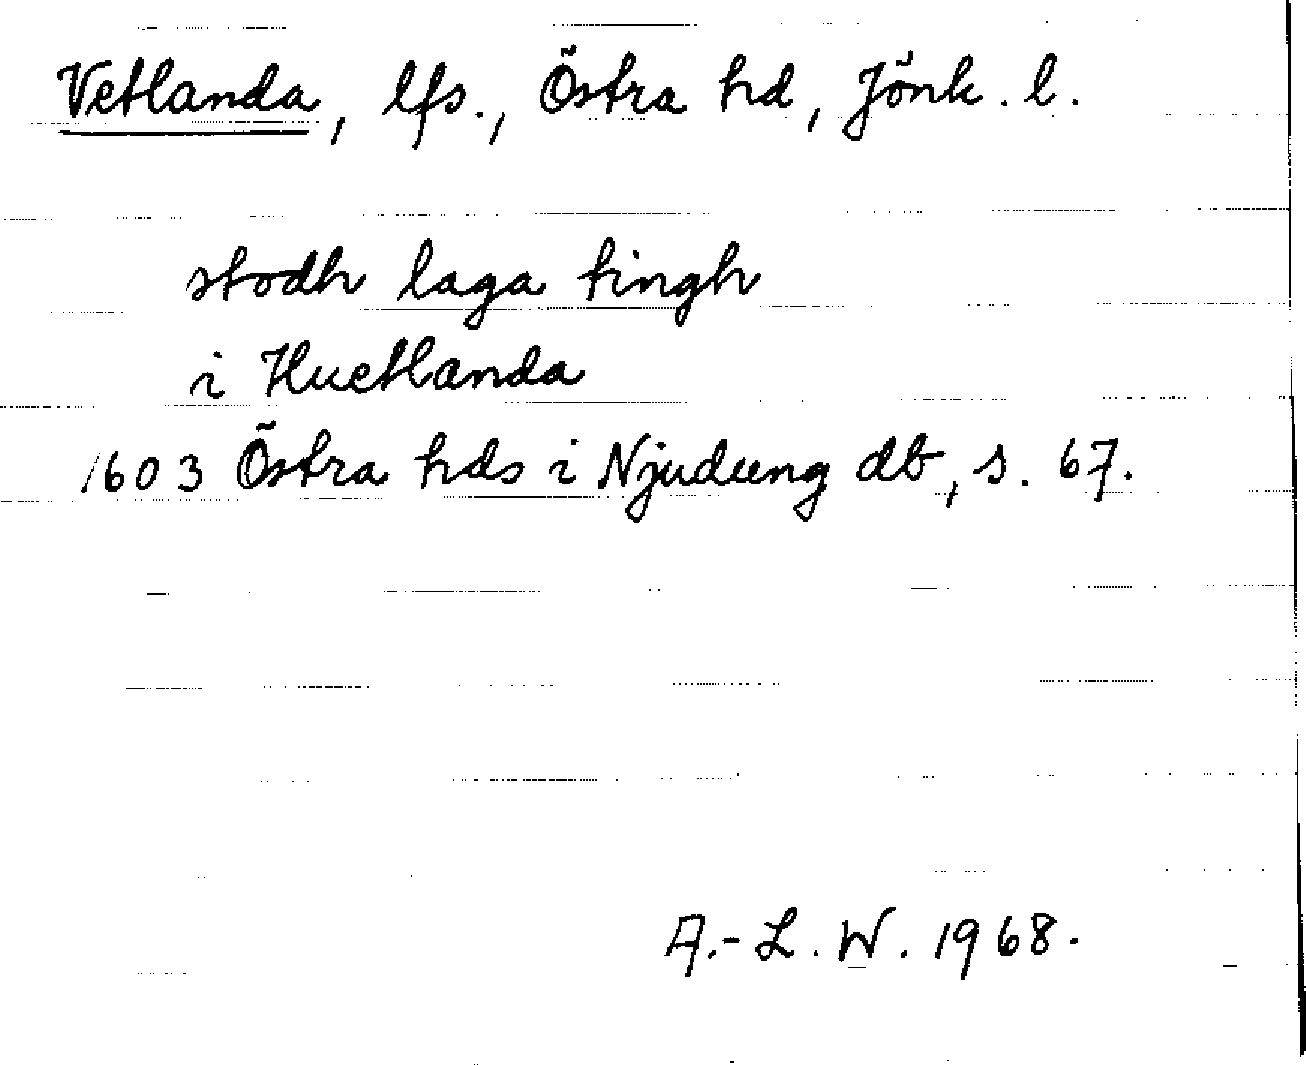 Vetlanda, lfs., Östra hd, Jönk. l.
stodh laga tingh
i Huetlanda
1603 Östra hds i Njudung db, s. 67.
A.-L. W. 1968.